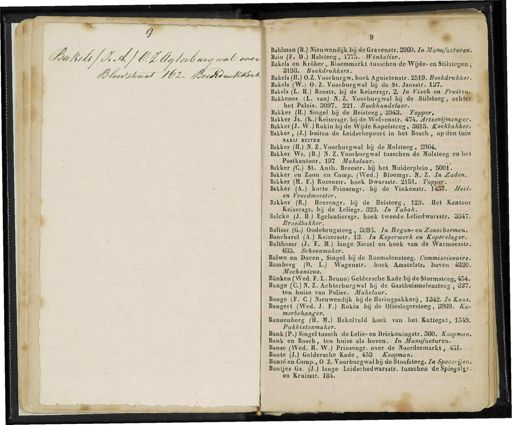 9
Bakels (J. A.) O Z Agterburgwal over
Bloedstraat 162. Boekdrukker.
9
Bahlman (B.) Nieuwendijk bij de Gravenstr. 2860. In Manufacturen.
Bain (F. D.) Halsteeg, 1775. Winkelier.
Bakels en Kröber, Bloemmarkt tusschen de Wijde- en Stilstegen,
3193. Boekdrukkers.
Bakels (H.) O. Z. Voorburgw. hoek Agnietenstr. 2519. Boekdrukker.
Bakels (W.) O. Z. Voorburgwal bij de St. Jansstr. 137.
Bakels (L. H.) Reestr. bij de Keizersgr. 2. In Visch en Fruiten.
Bakkenes (L. van) N. Z. Voorburgwal bij de Stilsteeg, achter
het Paleis. 3097. 221. Boekhandelaar.
Bakker (H.) Singel bij de Heisteeg, 3943. Tapper.
Bakker Jz. (K.) Keizersgr. bij de Wolvenstr. 474. Actsenijmenger.
Bakker (J. W.) Rokin bij de Wijde Kapelsteeg, 3615. Kookbakker.
Bakker, (J.) buiten de Leidschepoort in het Bosch, op den tuin
NABIJ BUITEN
Bakker (H.) N. Z. Voorburgwal bij de Molsteeg, 2904.
Bakker Wz. (B.) N. Z. Voorburgwal tusschen de Molsteeg en het
Postkantoor. 197 Makelaar.
Bakker (C.) St. Anth. Breestr. bij het Muiderplein, 5001.
Bakker en Zoon en Comp. (Wed.) Bloemgr. N. Z. In Zaden.
Bakker (M. F.) Rozenstr. hoek Dwarsstr. 2151. Tapper.
Bakker (A.) korte Prinsengr. bij de Vinkenstr. 1457. Heel-
en Vroedmeester.
Bakker (R.) Heerengr. bij de Heisteeg, 129. Het Kantoor
Keizersgr. bij de Leliegr. 323. In Tabak.
Balcke (J. H.) Egelantiersgr. hoek tweede Leliedwarsstr. 3347.
Broodbakker.
Balieur (G.) Oudebrugsteeg, 5093. In Regen- en Zonschermen.
Banchard (A.) Keizersstr. 13. In Koperwerk en Koperslager.
Balthasar (J. F. H.) lange Niezel en hoek van de Warmoesstr.
635. Schoenmaker.
Balwe en Docen, Singel bij de Roomolensteeg. Commissionairs.
Bamberg (D. L.) Wagenstr. hoek Amstelstr. boven 4330.
Mechanicus.
Bänken (Wed. F. L. Bruno) Geldersche Kade bij de Stormsteeg, 454.
Bange (C.) N. Z. Achterburgwal bij de Gasthuismolensteeg, 337.
ten huize van Polier. Makelaar.
Bange (F. C.) Nieuwendijk bij de Haringpakkerij, 1342. In Kaas.
Bangert (Wed. J. F.) Rokin bij de Olieslagerssteeg, 3969. Ka-
merbehanger.
Bannenberg (H. M.) Hekelveld hoek van het Kattegat, 1549.
Pakkistenmaker.
Bank (P.) Singel tusschen de Lelie- en Driekoningstr. 360. Koopman.
Bank en Bosch, ten huize als boven. In Manufacturen.
Banse (Wed. H. W.) Prinsengr. over de Noordermarkt, 451.
Bante (J.) Geldersche Kade, 453 Koopman.
Banté en Comp., O Z. Voorburgwal bij de Stoofsteeg. In Specerijen.
Bantjes Gz. (J.) lange Leidschedwarsstr. tusschen de Spiegelgr.
en Kruisstr. 184.